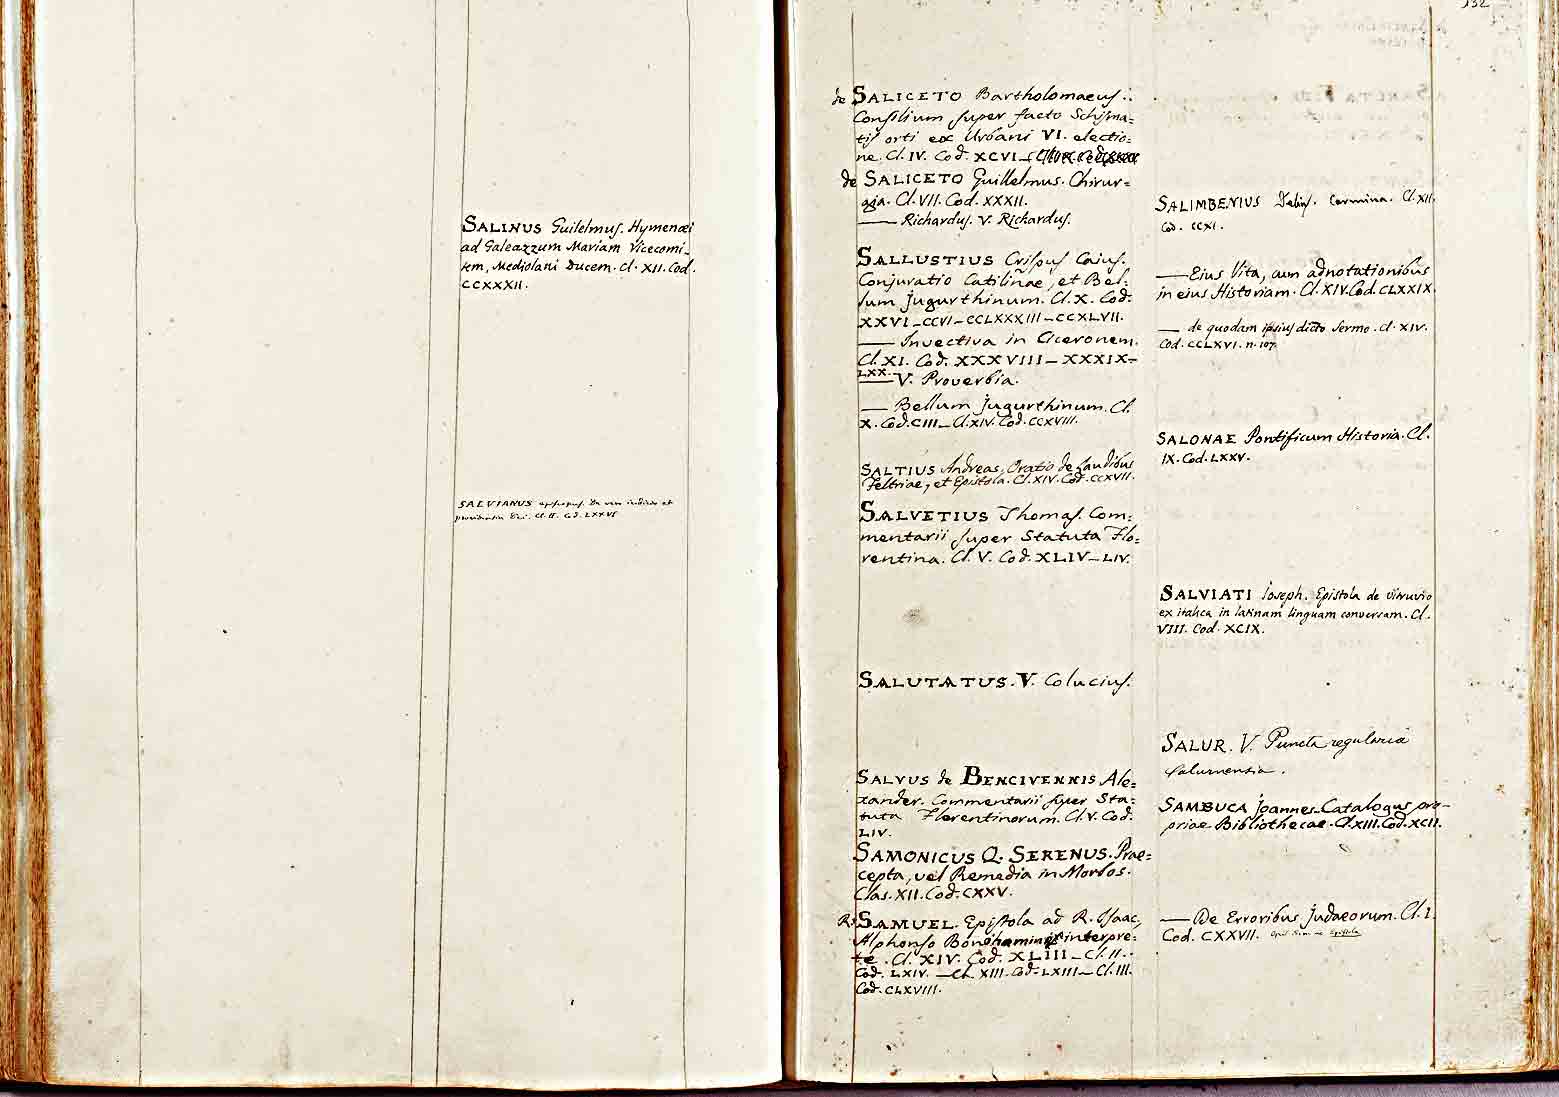 SALINUS Guilelmus. Hymenæi
ad Galeazzum Mariam Vicecomi_
tem, Mediolani Ducem. Cl. XII. Cod.
CCXXXII.
SALVIANUS episcopus. De vero iudicio et
providentia Dei. Cl. II. Cod. LXXVI
132
de SALICETO Bartholomaeus.
Consilium super facto Schisma=
tis orti ex Urbani VI. electio=
ne. Cl. IV. Cod. XCVI_
de SALICETO Guillelmus. Chirur=
gia. Cl. VII. Cod. XXXII.
—— Richardus. V. Richardus.
SALLUSTIUS Crispus Caius.
Conjuratio Catilinae, et Bel=
lum jugurthinum. Cl. X. Cod.
XXVI_CCVI_CCLXXXIII_CCXLVII.
—— Invectiva in Ciceronem.
Cl. XI. Cod. XXXVIII_XXXIX_
LXX.
—— V. Proverbia.
—— Bellum jugurthinum. Cl.
X. Cod. CIII_Cl. XIV. Cod. CCXVIII.
SALTIUS Andreas, Oratio de Laudibus
Feltriae, et Epistola. Cl. XIV. Cod. CCXVII.
SALVETIUS Thomas. Com=
mentarii super Statuta Flo=
rentina. Cl. V. Cod. XLIV_LIV.
SALUTATUS. V. Colucius.
SALVUS de BENCIVENNIS Ale=
xander. Commentarii super Sta=
tuta Florentinorum. Cl. V. Cod.
LIV.
SAMONICUS Q. SERENUS. Prae=
cepta, vel Remedia in Morbos.
Clas. XII. Cod. CXXV.
R. SAMUEL. Epistola ad R. Isaac,
Alphonso interpre=
te. Cl. XIV. Cod. XLIII_Cl. II.
Cod. LXIV. _Cl. XIII. Cod. LXIII_Cl. III.
Cod. CLXVIII.
SALIMBENIUS carmina. Cl. XII.
Cod. CCXI.
—— Eius Vita, cum adnotationibus
in eius Historiam. Cl. XIV. Cod. CLXXIX.
—— de quodam ipsius dicto Sermo. Cl. XIV.
Cod. CCLXVI. n. 107.
SALONAE Pontificum Historia. Cl.
IX. Cod. LXXV.
SALVIATI Joseph. Epistola de Vitruvio
ex italica in latinam linguam conversam. Cl.
VIII. Cod. XCIX.
SALUR. V. Puncta regularia
Salurnensia.
SAMBUCA Joannes. Catalogus pro-
priae Bibliothecae. Cl. XIII. Cod. XCII.
—— De Erroribus Judaeorum. Cl. I.
Cod. CXXVII. Epistola